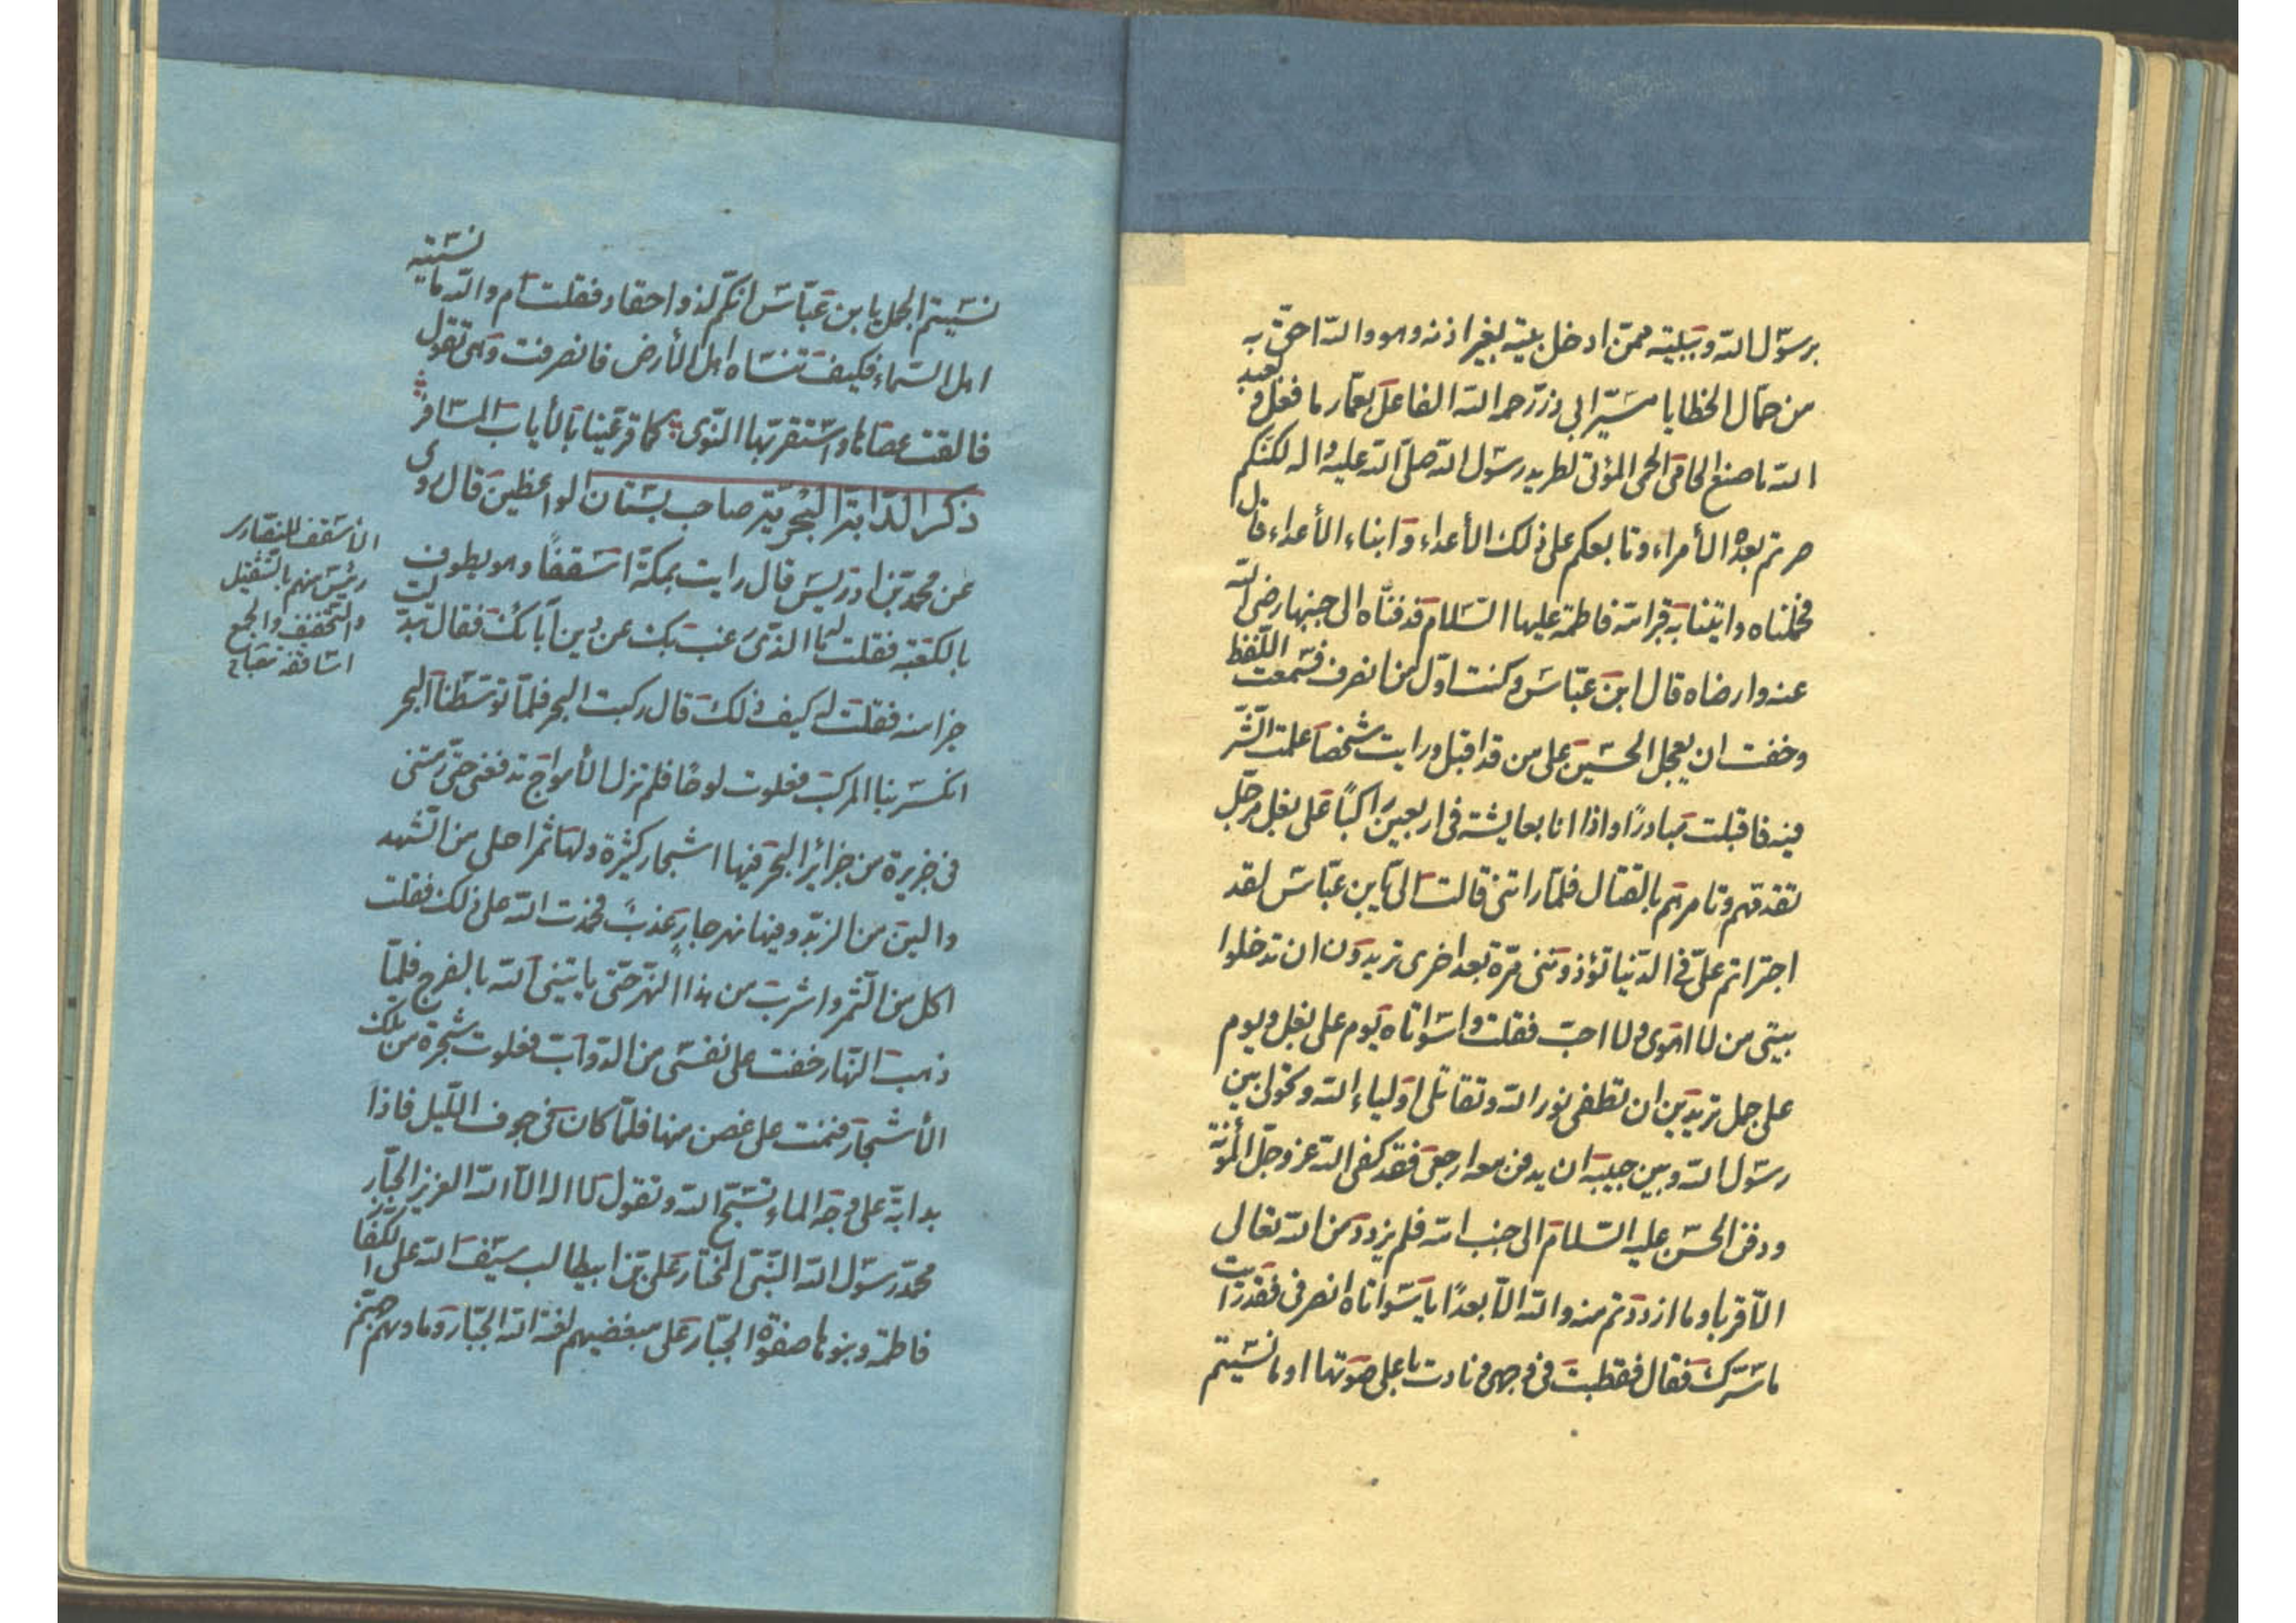 برسول الله وببيته ممن ادخل بيته بغير اذنه وهو والله احق به
من حمال الخطايا مسير ابي ذر رحمه الله الفاعل بعمار ما فعل وبعبد
الله ما صنع الحامى الحمى المؤى لطريد رسول الله صلى الله عليه واله لكنكم
صرتم بعده الأمراء وتابعكم على ذلك الأعداء وابناء الأعداء قال
فحملناه واتينا به قبر امه فاطمة عليها السلام فدفناه الى جنبها رضى الله
عنه وارضاه قال ابن عباس وكنت اول من انصرف فسمعت اللغط
وخفت ان يعجل الحسين على من قد اقبل ورايت شخصا علمت الشر
فيه فاقبلت مبادرا واذا انا بعايشة فى اربعين راكبا على بغل مرحل
تقدمهم وتامرهم بالقتال فلما راتنى قالت الى يا بن عباس لقد
اجتراتم على فى الدنيا تؤذوننى مرة بعد اخرى تريدون ان تدخلوا
بيتى من لا اهوى ولا احب فقلت واسواتاه يوم على بغل ويوم
على جمل تريدين ان تطفى نور الله وتقاتلى اولياء الله وتحولى بين
رسول الله وبين حبيبه ان يدفن معه ارجعى فقد كفى الله عز وجل المؤنة
ودفن الحسن عليه السلام الى جنب امه فلم يزدد من الله تعالى
الا قربا وما ازددتم منه والله الا بعدا يا سواتاه انصرفى فقد رايت
ما سرك فقال فقطبت فى وجهى ونادت باعلى صوتها اوما نسيتم
نسيتم الجمل يا بن عباس انكم لذو احقاد فقلت ام والله ما نسيته
اهل السماء فكيف تنساه اهل الأرض فانصرفت وهى تقول
فالقت عصاها واستقر بها النوى كما قر عينا بالأياب المسافر
ذكر الدابة البحرية صاحب بستان الواعظين قال روى
عن محمد بن ادريس قال رايت بمكة اسقفا وهو يطوف
بالكعبة فقلت له ما الذى رغب بك عن دين آبائك فقال تبدلت
خيرا منه فقلت له كيف ذلك قال ركبت البحر فلما توسطنا البحر
انكسر بنا المركب فعلوت لوحا فلم تزل الأمواج تدفعنى حتى رمتنى
فى جزيرة من جزائر البحر فيها اشجار كثيرة ولها ثمر احلى من الشهد
والين من الزبد وفيها نهر جار عذب فحمدت الله على ذلك فقلت
اكل من الثمر واشرب من هذا النهر حتى ياتينى الله بالفرج فلما
ذهب النهار خفت على نفسى من الدواب فعلوت شجرة من تلك
الأشجار فنمت على غصن منها فلما كان فى جوف الليل فاذا
بدابة على وجه الماء تسبح الله وتقول لا اله الا الله العزيز الجبار
محمد رسول الله النبى المختار على بن ابيطالب سيف الله على الكفار
فاطمة وبنوها صفوة الجبار على مبغضيهم لعنة الله الجبار وماويهم جهنم
الأسقف للنصارى
رئيس منهم بالتثقيل
والتخفيف والجمع
اساقفة